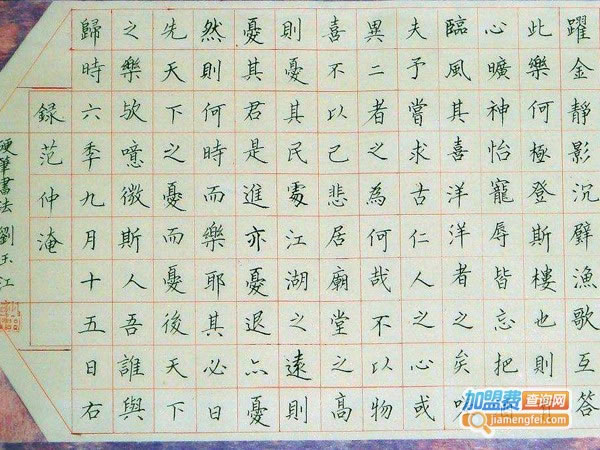 躍金靜影沉璧漁歌互答
此樂何極登斯樓也則
心曠神怡寵辱皆忘把
臨風其喜洋洋者之矣
夫予嘗求古仁人之心或
異二者之為何哉不以物
喜不以己悲居廟堂之高
則憂其民處江湖之遠則
憂其君是進亦憂退亦憂
然則何時而樂耶其必日
先天下之憂而憂後天下
之樂欤噫微斯人吾誰與
歸時六季九月十五日右
錄范仲淹
硬筆書法劉玉江
加盟费查询网
jiamengfei.com